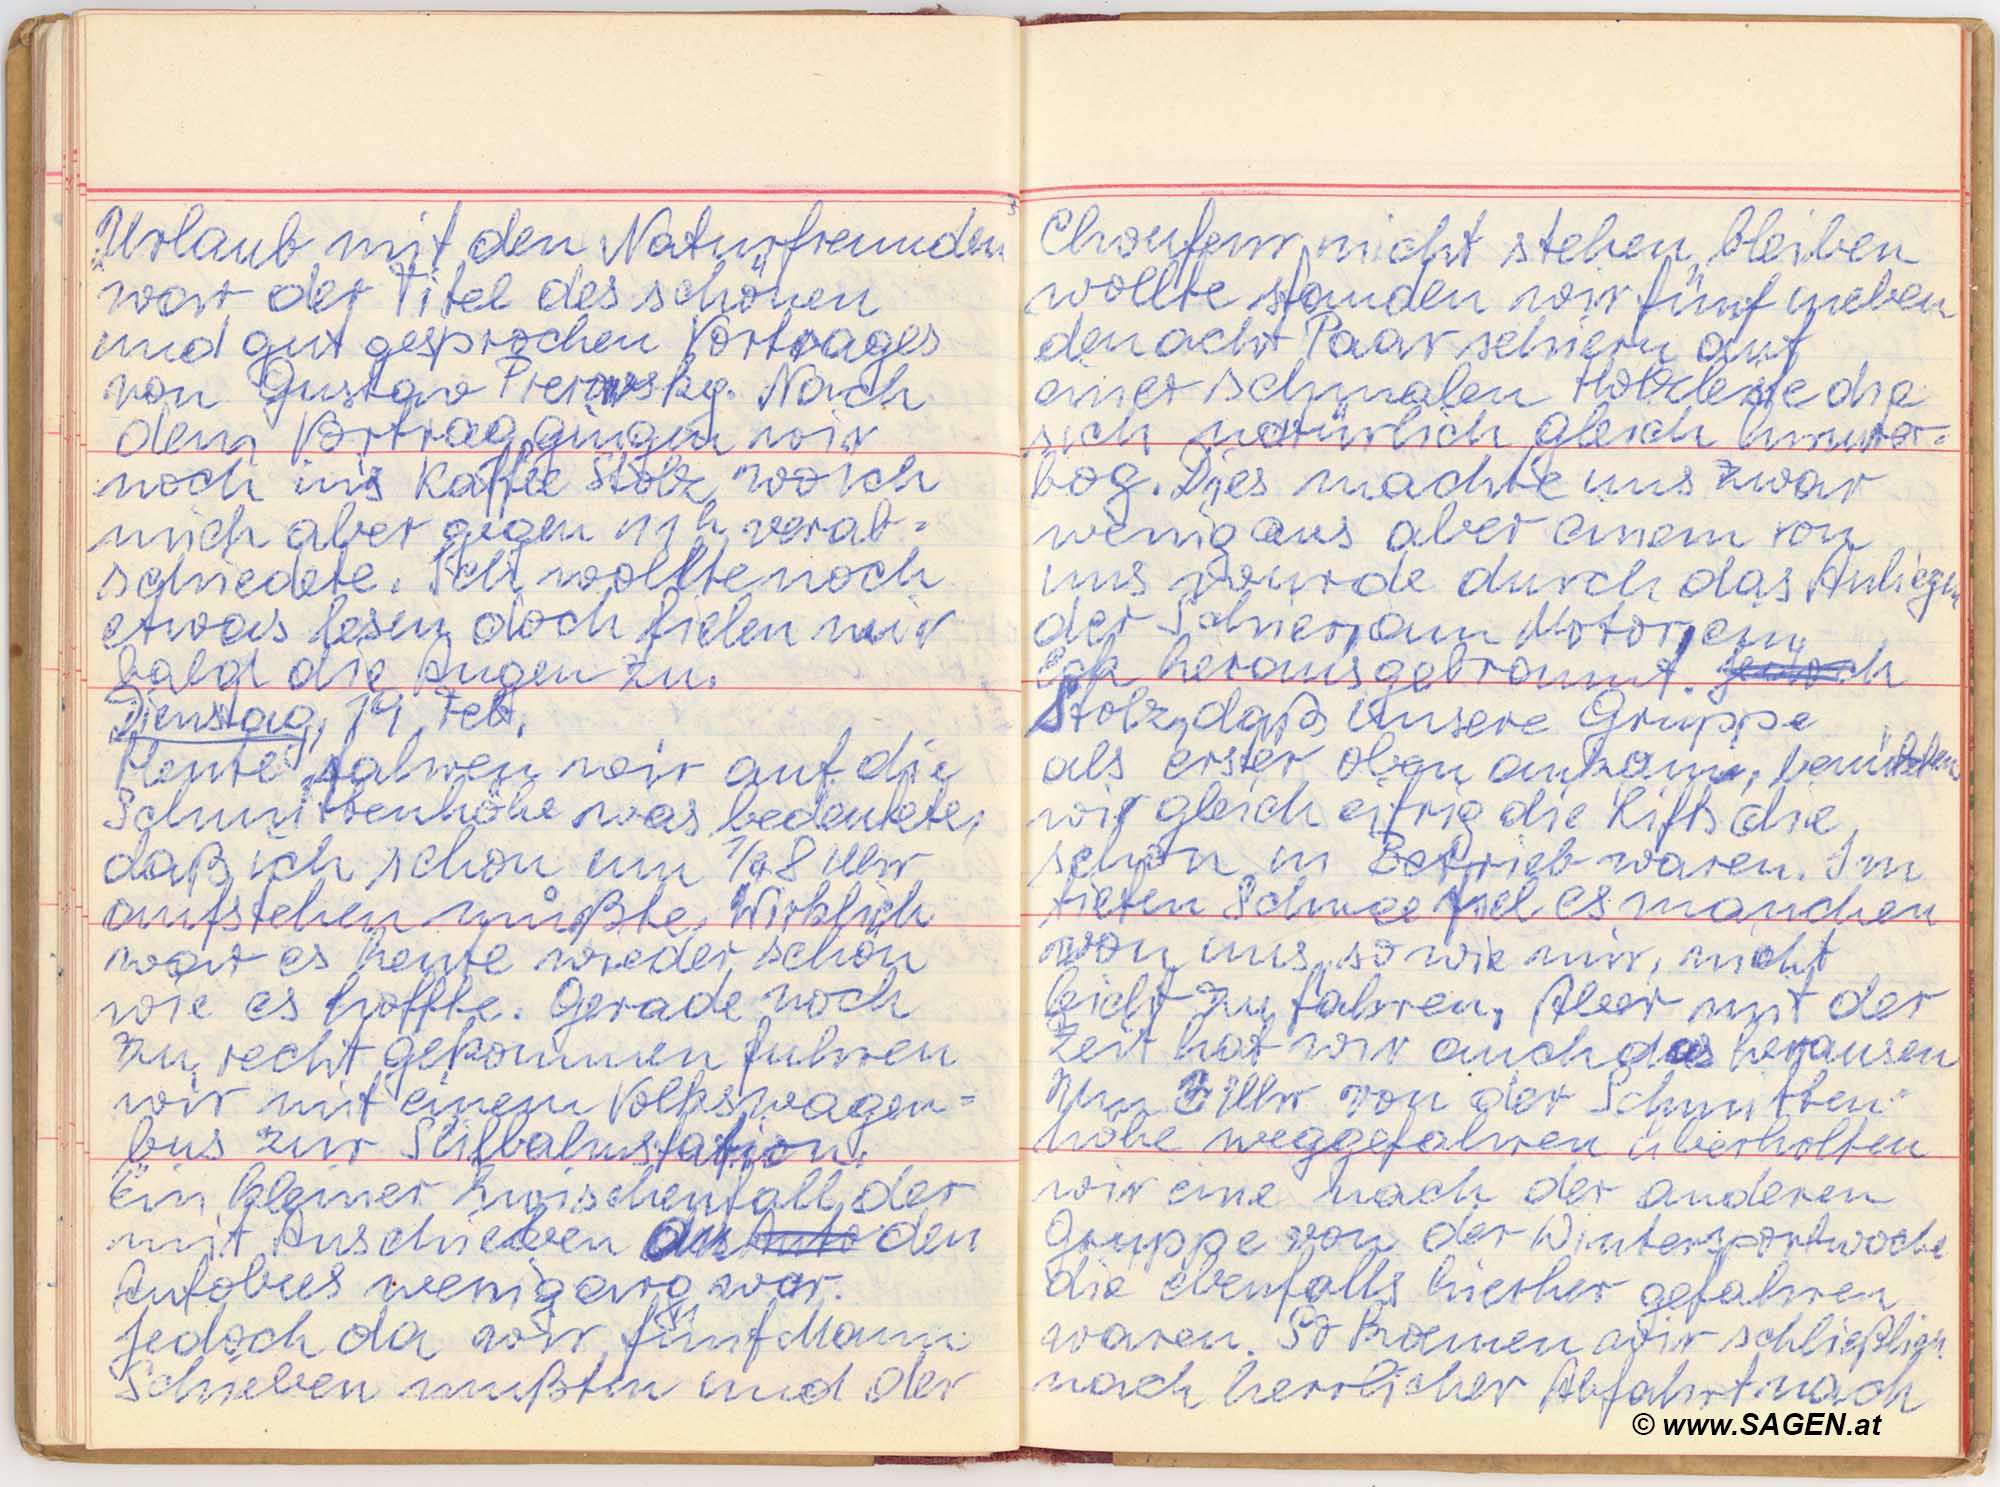 „Urlaub mit den Naturfreunden
war der Titel des schönen
und gut gesprochen Vortrages
von Gustav. Nach
dem Vortrag gingen wir
noch ins Kaffee Stolz, wo ich
mich aber gegen 11h verab=
schiedete. Ich wollte noch
etwas lesen doch fielen mir
bald die Augen zu.
Dienstag, 19. Feb.
Heute fahren wir auf die
Schmittenhöhe was bedeutete,
daß ich schon um 1/28 Uhr
aufstehen mußte. Wirklich
war es heute wieder schön
wie es hoffte. Gerade noch
zu recht gekommen fuhren
wir mit einem Volkswagen=
bus zur Seilbahnstation.
Ein kleiner Zwischenfall der
mit Anschieben des Auto den
Autobus wenig arg war.
Jedoch da wir fünf Mann
Schieben mußten und der
Choufeur nicht stehen bleiben
wollte standen wir fünf neben
den acht Paar schiern auf
einer schmalen Holzleiste die
sich natürlich gleich hinunter=
bog. Dies machte uns zwar
wenig aus aber einem von
uns wurde durch das Anliegen
der Schier am Motor ein
Eck herausgebrannt. jedoch
Stolz, daß unsere Gruppe
als erster oben ankam, benützten
wir gleich eifrig die Lifts die
schon in Betrieb waren. Im
tiefen Schnee fiel es manchen
von uns, so wie mir, nicht
leicht zu fahren. Aber mit der
Zeit hat wir auch das heraussen
Um 3 Uhr von der Schmitten=
höhe weggefahren überholten
wir eine nach der anderen
Gruppe von der Wintersportwoche
die ebenfalls hierher gefahren
waren. So kamen wir schließlich
nach herrlicher Abfahrt nach
© www.SAGEN.at